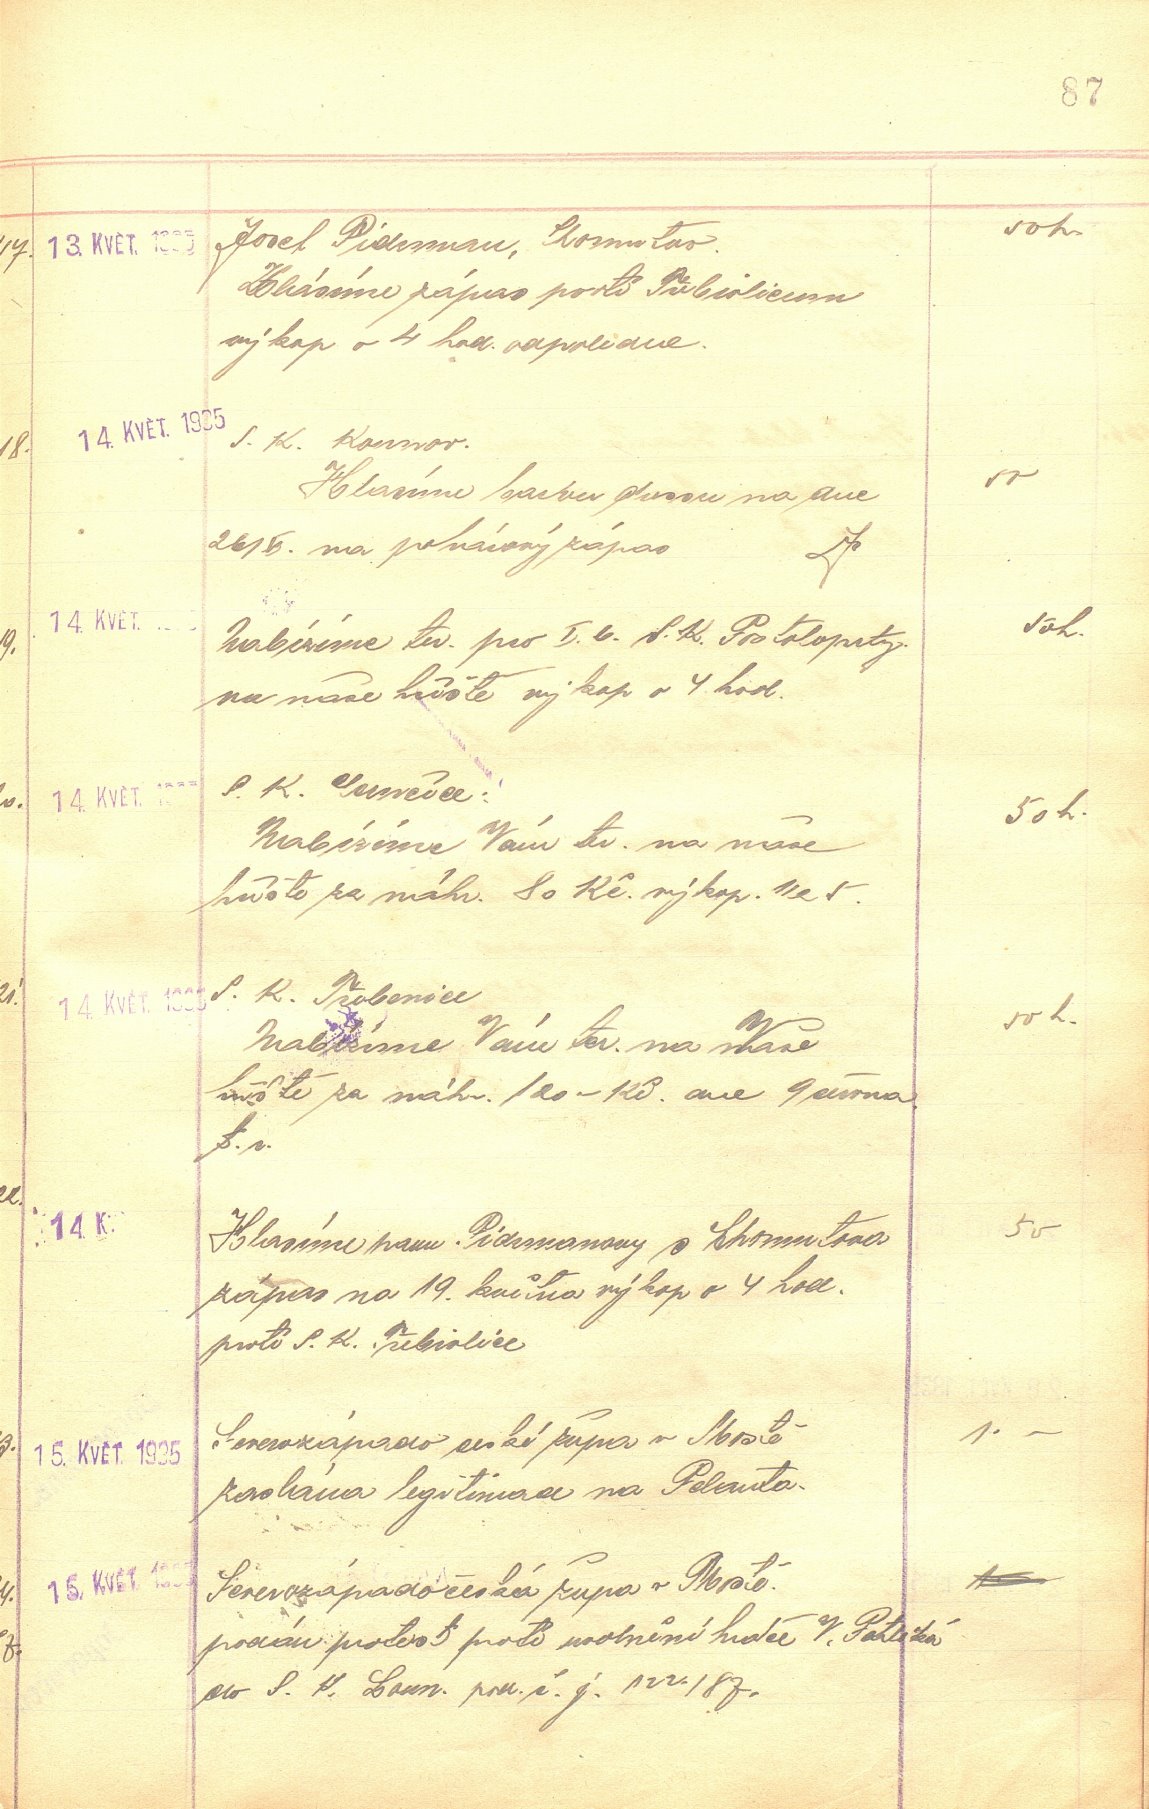 87
17. 13. KVĚT. 1935 Josef Pidrman, Chomutov. 50 h.
Hlásíme zápas proti Třebívlicum
výkop o 4 hod. odpoledne.
18. 14. KVĚT. 1935 S. K. Kounov.
Hlasíme barvu dressu na dne 50
26/5. na pohárový zápas
19. 14. KVĚT. Nabízíme tu. pro I. b. S. K. Postoloprty. 50h.
na naše hřiště výkop o 4 hod.
14. KVĚT. S. K. 50h.
Nabízíme Vám tu. na naše
hřiště za náhr. 80 Kč. výkop.
21. 14. KVĚT. 1935 S. K. Třebenice
Nabízíme Vám tu. na Vaše 50 h.
hřiště za náhr. 120 – Kč. dne 9 června
t. r.
22. 14 K. Hlasíme panu Pidrmanovy s Chomutova 50
zápas na 19. května výkop o 4 hod.
proti S. K. Třebívlice
15. KVĚT. 1935 Severozápado české župa v Mostě 1. –
zaslána legitimace na Pelanta.
15. KVĚT. 1935 Severozápadočeská župa v Mostě.
podán protest proti uvolnění hráče V.
do S. K. Loun. pod. č. j. 122/87.